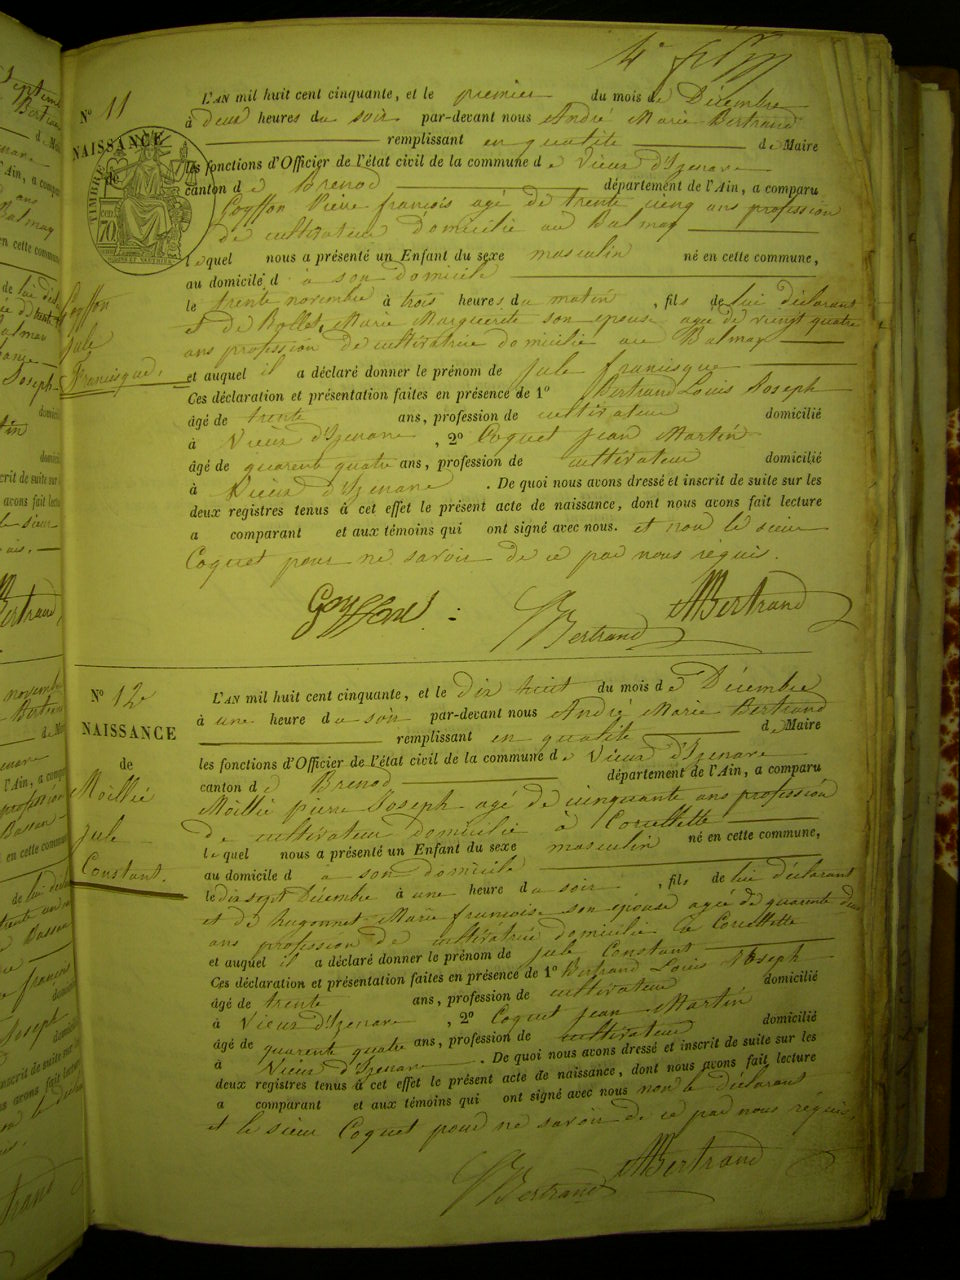 4e
N° 11
NAISSANCE
de
TIMBRE
70
Goyffon
Jule
Francisque.
L'AN mil huit cent cinquante, et le premier du mois de Décembre
à deux heures du soir par-devant nous André Marie Bertrand
remplissant en qualité de Maire
les fonctions d'Officier de l'état civil de la commune de Vieux d'Izenave
canton de Brenod département de l'Ain, a comparu
Goyffon Pierre françois agé de trente cinq ans profession
de cultivateur domicilié au Balmay
lequel nous a présenté un Enfant du sexe masculin né en cette commune,
au domicile d à son domicile
le trente novembre à trois heures du matin, fils de lui déclarant
et de Rollet Marie Marguerite son epouse agée de vingt quatre
ans profession de cultivatrice domicilié au Balmay
et auquel il a déclaré donner le prénom de Jule francisque
Ces déclaration et présentation faites en présence de 1° Bertrand Louis Joseph
âgé de trente ans, profession de cultivateur domicilié
à Vieux d'Izenave, 2° Coquet jean Martin
âgé de quarente quatre ans, profession de cultivateur domicilié
à Vieux d'Izenave. De quoi nous avons dressé et inscrit de suite sur les
deux registres tenus à cet effet le présent acte de naissance, dont nous avons fait lecture
a comparant et aux témoins qui ont signé avec nous. et non le sieur
Coquet pour ne savoir de ce par nous réquis.
Goyffon
Bertrand
AMBertrand
N° 12
NAISSANCE
de
Moillié
jule
Constant.
L'AN mil huit cent cinquante, et le dix huit du mois de Décembre
à une heure du soir par-devant nous André Marie Bertrand
remplissant en qualité de Maire
les fonctions d'Officier de l'état civil de la commune de Vieux d'Izenave
canton de Brenod département de l'Ain, a comparu
Moillié pierre Joseph agé de cinquante ans profession
de cultivateur domicilié à Corcellette
lequel nous a présenté un Enfant du sexe masculin né en cette commune,
au domicile d à son domicile
le dix sept Décembre à une heure du soir, fils de lui déclarant
et de hugonnet Marie francoise son epouse agée de quarente deux
ans profession de cultivatrice domicilié à Corcellette
et auquel il a déclaré donner le prénom de jule Constant
Ces déclaration et présentation faites en présence de 1° Bertrand Louis Joseph
âgé de trente ans, profession de cultivateur domicilié
à Vieux d'Izenave, 2° Coquet jean Martin
âgé de quarente quatre ans, profession de cultivateur domicilié
à Vieux d'Izenave. De quoi nous avons dressé et inscrit de suite sur les
deux registres tenus à cet effet le présent acte de naissance, dont nous avons fait lecture
a comparant et aux témoins qui ont signé avec nous non le déclarant
et le sieur Coquet pour ne savoir de ce par nous réquis.
Bertrand
AMBertrand